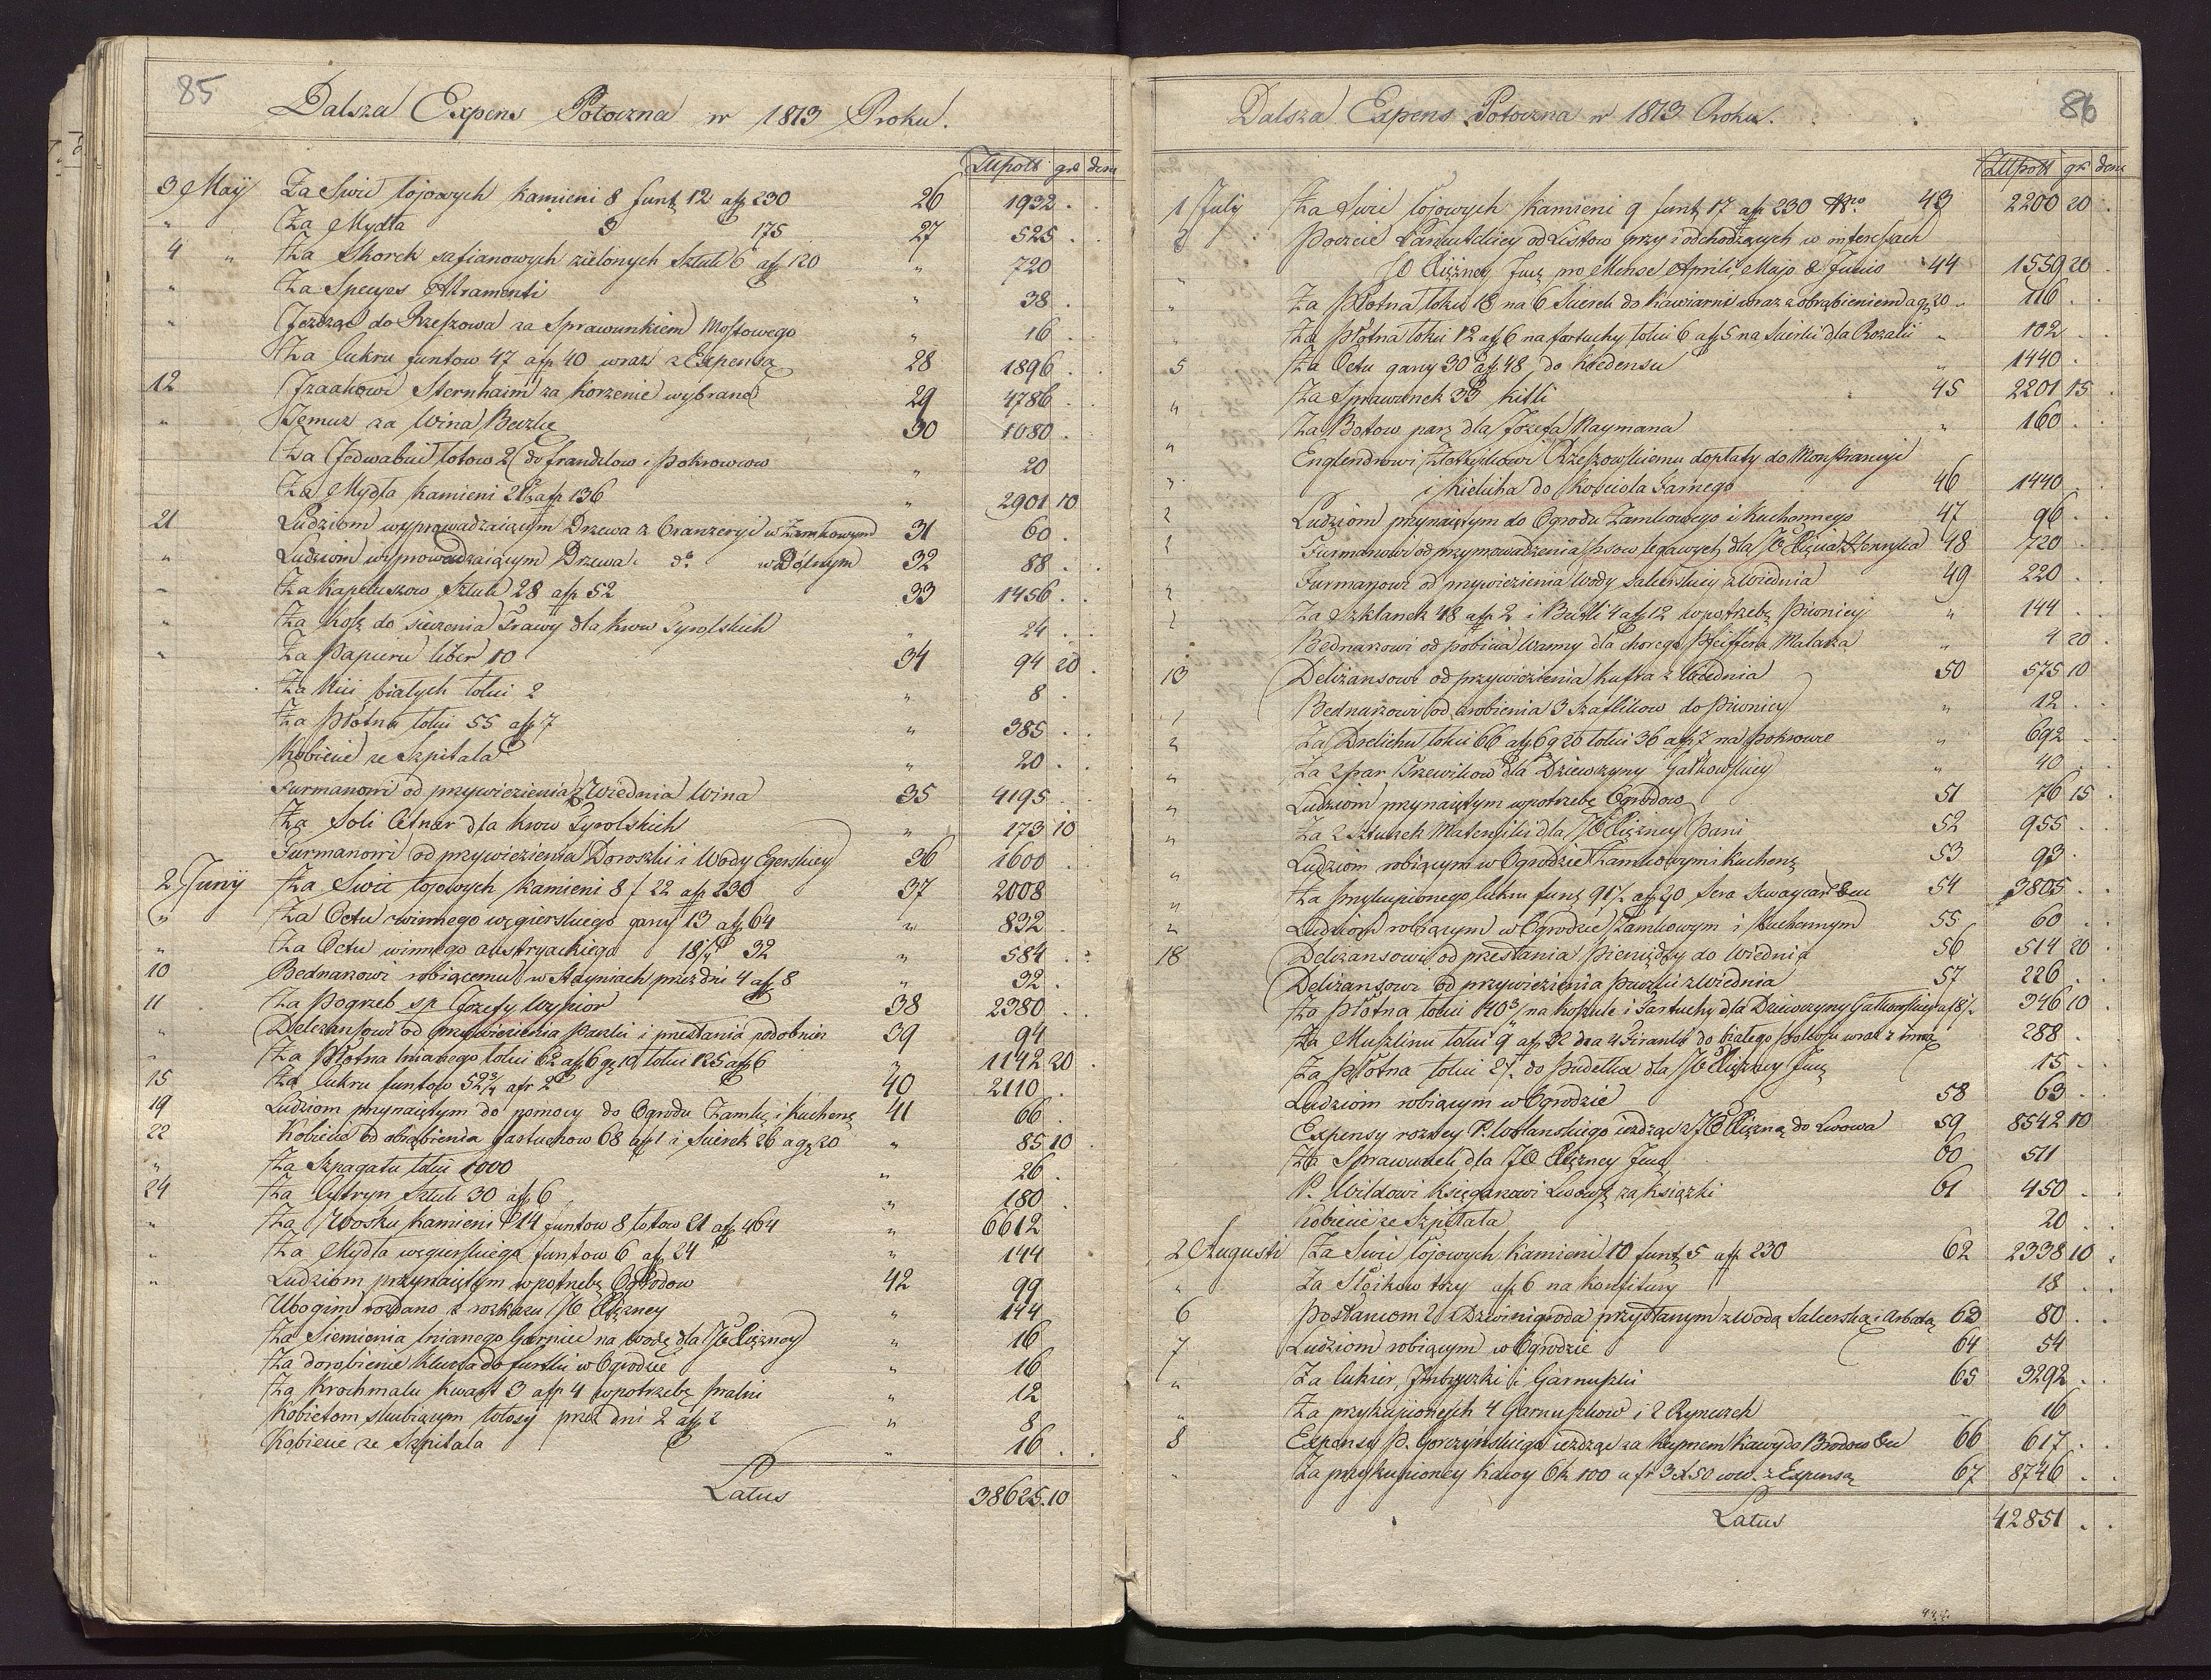 85
Dalsza Expens Potoczna w 1813 Roku.
Złłpols gr den
3 Maÿ Za Swic łojowych kamieni 8 funt 12 aff 230 26 1932 . .
" Za Mydła 3 175 27 525 . .
4 " Za Skorek safianowych zielonych Sztuk 6 aff 120 " 720
" Za Speцyes Atramenti " 38 .
" Jeżdżąc do Rzeszowa za Sprawunkiem Mostowego " 16 .
Za Cukru funtow 47 aff 40 wraz z Expensą 28 1896 .
12 Izaakowi Sternhaim za Korzenie wybrane 29 4786 .
" Temuz za Wina Beczkę 30 1080 .
Za Jedwabiu łotow 2 do frandzlow i Pokrowcow " 20
Za Mydła kamieni 21 aff 136 " 2901 10
21 Ludziom wyprowadzaiącym Drzewa z Oranzeryi w Zamkowym 31 60 .
" Ludziom wyprowadzaiącym Drzewa do w Dolnym 32 88 .
" Za Kapeluszow Sztuk 28 aff 52 33 1456 .
" Za Kosę do sieczenia Trawy dla krow Tyrolskich " 24 .
" Za Papieru liber 10 34 94 20 .
Za Kiii białych łokci 2 " 8 .
Za Płotna łokci 55 aff 7 " 385 .
Kobiecie ze Szpitala " 20 .
Furmanowi od przywiezienia z Wiednia Wina 35 4195
Za Soli Cetnar dla krow Tyrolskich " 173 10
Furmanowi od przywiezienia Doroszki i Wody Egerskiey 36 1600
2 Junÿ Za Swic łojowych kamieni 8 f 22 aff 230 37 2008
" Za Octu winnego węgierskiego garcy 13 aff 64 " 832
" Za Octu winnego austryackiego 18¼ 32 " 584 .
10 Bednarowi robiącemu w Stayniach przez dni 4 aff 8 " 32 .
11 Za Pogrzeb sp Jozefy Wypior 38 2380
" Delizansowi od przywiezienia Paczki i przesłania podobnież 39 94
" Za Płotna lnianego łokci 62 aff 6 gr 10 łokci 125 aff 6 " 1142 20 .
15 Za Cukru funtow 52¾ aff 40 2110 .
19 Ludziom przynaiętym do pomocy do Ogrodu Zamk i Kuchen 41 66 .
22 Kobiecie od obrąbienia fartuchow 68 aff 1 i Scierek 26 a gr 20 " 85 10 .
" Za Szpagatu łokci 1000 " 26 .
24 Za Cytryn Sztuk 30 aff 6 " 180 .
" Za Wosku kamieni 14 funtow 8 łotow 21 aff 464 " 6612
" Za Mydła węgierskiego funtow 6 aff 24 " 144
" Ludziom przynaiętym w potrzebę Ogrodow 42 99
Ubogim rozdano z rozkazu JO Xiężney " 144
Za Siemienia lnianego Garniec na wodę dla JO Xiężney " 16
Za dorobienie Klucza do furtki w Ogrodzie " 16
Za Krochmalu Kwart 3 aff 4 w potrzebę Pralni " 12
Kobietom skubiącym włosy przez dni 2 aff 2 " 8
Kobiecie ze Szpitala " 16 . .
Latus 38625.10
86
Dalsza Expens Potoczna w 1813 Roku.
Złłpols gr den
1 July Za Swic łojowych Kamieni 9 funt 17 aff 230 Nro 43 2200 20 .
2 Poczcie Łancutskiey od Listow przy i odchodzących w interessach
JO Xiężney Jmc pro Mense Aprili, Majo & Junio 44 1559 20 .
" Za Płotna łokci 18 na 6 Scierek do Kawiarni wraz z obrąbieniem a gr 20 " 116 .
" Za Płotna łokci 12 aff 6 na fartuchy łokci 6 aff 5 na Scierki dla Rozalii " 102 .
5 Za Octu garcy 30 aff 48 do Kredensu " 1440 .
" Za Sprawunek 33 kitli 45 2201 15 .
" Za Botow parę dla Jozefa Naymana " 160 .
" Englendrowi Złotnikowi Rzeszowskiemu dopłaty do Monstrancyi
" i Kielicha do Kościoła Farnego 46 1440 .
" Ludziom przynaiętym do Ogrodu Zamkowego i Kuchennego 47 96 .
" Furmanowi od przyprowadzenia psow legawych dla JO Xięcia Henryka 48 720 .
" Furmanowi od przywiezienia Wody Salcerskiey z Wiednia 49 220 .
" Za Szklanek 48 aff 2 i Butli 4 aff 12 w potrzebę Piwnicy " 144 .
" Bednarzowi od pobicia Wanny dla chorego Pfeiffera Malarza " 4 20 .
13 Delizansowi od przywiezienia kufra z Wiednia 50 575 10
" Bednarzowi od zrobienia 3 Szaflikow do Piwnicy " 12 .
" Za Drelichu łokci 66 aff 6 g 20 łokci 36 aff 7 na Pokrowce " 692 .
" Za 2 par Trzewikow dla Dziewczyny Gałkowskiey " 40
" Ludziom przynaiętym w potrzebę Ogrodow 51 76 15 .
" Za 2 Sztuczek Materyiki dla JO Xiężney Pani 52 955 .
" Ludziom robiącym w Ogrodzie Zamkowym i Kuchenę 53 93 .
" Za przykupionego Cukru funt 91½ aff 40 Sera Szwaycar &cu 54 3805 .
" Ludziom robiącym w Ogrodzie Zamkowym i Kuchennym 55 60 .
18 Delizansowi od przesłania Pieniędzy do Wiednia 56 514 20 .
Delizansowi od przywiezienia Paczki z Wiednia 57 226 .
Za Płotna łokci 40¾ na Koszule i Fartuchy dla Dziewczyny Gałkowskiey aff 8½ 346 10 .
Za Muszlinu łokci 9 aff 32 dla 4 Firanki do białego Pokoju wraz z 288 .
Za Płotna łokci 2½ do Pudełka dla JO Xiężney Jmc 15 .
Ludziom robiącym w Ogrodzie 58 63 .
Expensy rozney P. Wolanskiego ieżdżąc z JO Xiężną do Lwowa 59 8542 10
Za Sprawunek dla JO Xiężney Jmc 60 511
P. Wildowi Księgarzowi Lwows za książki 61 450 .
Kobiecie ze Szpitala 20 .
2 Augusti Za Swic łojowych Kamieni 10 funt 5 aff 230 62 2338 10 .
" Za Słoikow trzy aff 6 na Konfitury 18 .
6 Posłancom 2 z Dzwinigroda przysłanym z Wodą Salcerską i Arbatą 63 80 .
7 Ludziom robiącym w Ogrodzie 64 54
" Za Cukier, Imbryczki i Garnuszki 65 3292 .
" Za przykupionych 4 Garnuszkow i 2 Rynczek " 16
8 Expensy P. Gorczynskiego ieżdżąc za kupnem Kawy do Brodow &cu 66 617 .
" Za przykupioney Kawy 6k 100 a fr 3 x 50 ww. z Expensą 67 8746 .
Latus 42851 . .